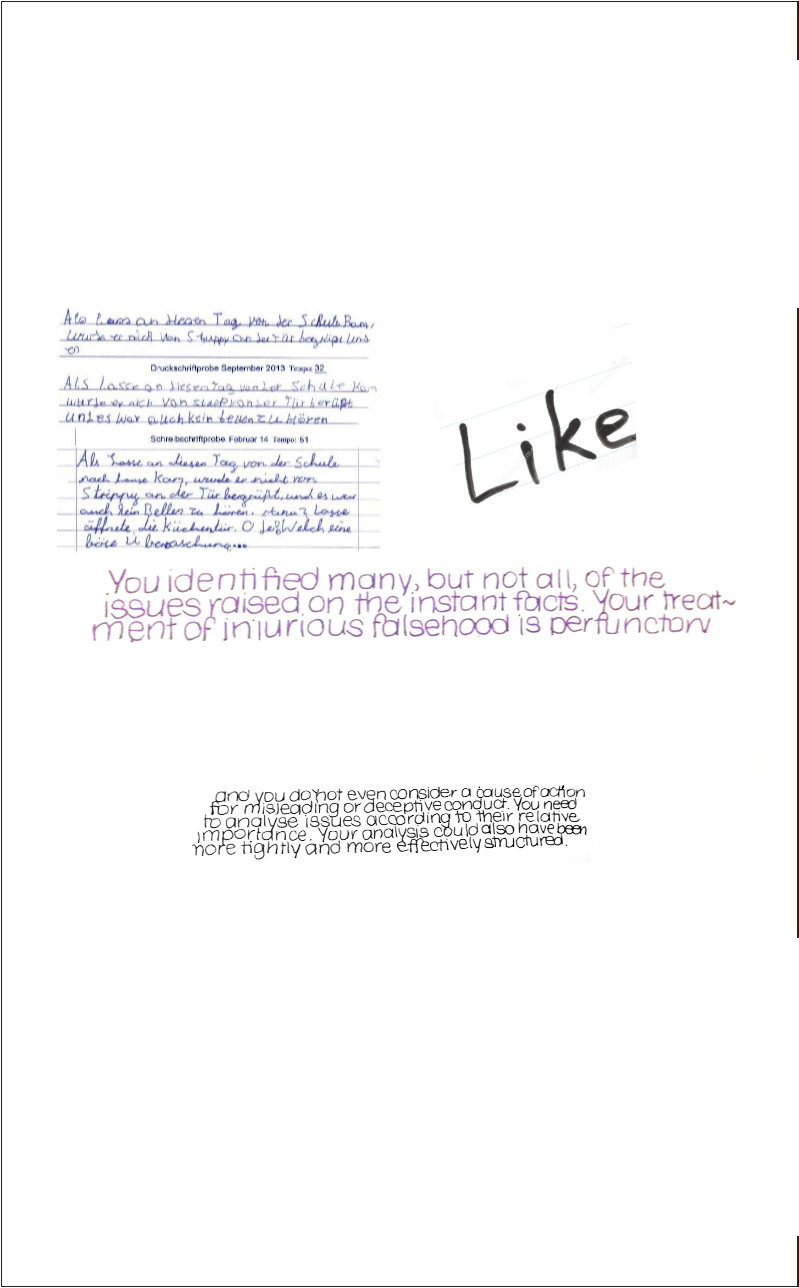 Als Lasse an diesen Tag von der Schule kam,
wurde er nich von Struppy an der Tür begrüßt und
Druckschriftprobe September 2013 Tempo: 32
ALS Lasse an diesen Tag von der Schule kam
wurde er nich von der Tür berüßt
und es war auch kein bellen zu hören
Schreibschriftprobe Februar 14 Tempo: 51
Als Lasse an diesen Tag von der Schule
nach Hause kam, wurde er nicht von
Strippy an der Tür begrüßt, und es war
auch kein Bellen zu hören. Lasse
öffnete die Küchentür. O Welch eine
böse Überraschung...
Like
You identified many, but not all, of the
issues raised on the instant facts. Your treat~
ment of injurious falsehood is perfunctory
and you do not even consider a cause of action
for misleading or deceptive conduct. You need
to analyse issues according to their relative
importance. Your analysis could also have been
more tightly and more effectively structured.